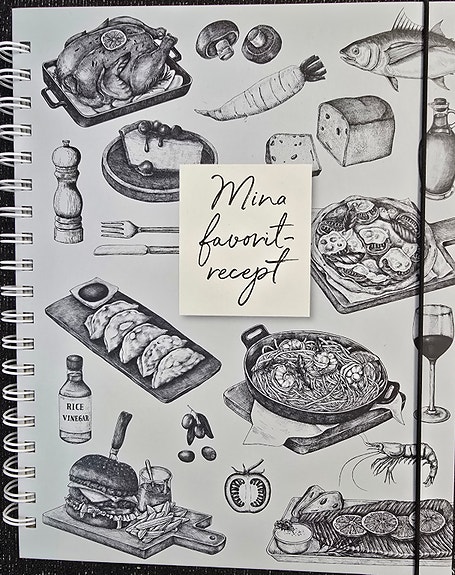 Mina
favorit-
recept
RICE
VINEGAR